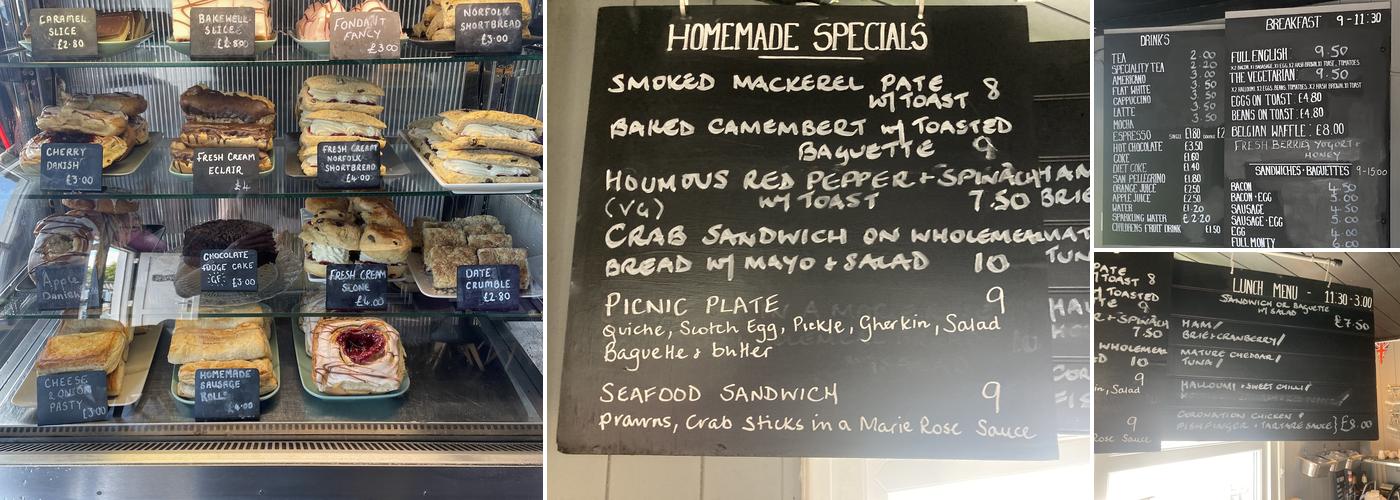 CARAMEL
SLICE
£2.80
BAKEWELL
SLICE
FONDANT
FANCY
£3.00
NORFOLK
SHORTBREAD
£3.00
CHERRY
DANISH
£3.00
FRESH CREAM
ECLAIR
£4
FRESH CREAM
NORFOLK
SHORTBREAD
£4.00
Apple
Danish
CHOCOLATE
FUDGE CAKE
GF £3.00
FRESH CREAM
SCONE
£4.00
DATE
CRUMBLE
£2.80
CHEESE
& ONION
PASTY
£3.00
HOMEMADE
SAUSAGE
ROLL
£4.00
HOMEMADE SPECIALS
SMOKED MACKEREL PATE
W/ TOAST 8
BAKED CAMEMBERT W/ TOASTED
BAGUETTE 9
HOUMOUS RED PEPPER + SPINACH
(VG) W/ TOAST 7.50
CRAB SANDWICH ON WHOLEMEAL
BREAD W/ MAYO & SALAD 10
PICNIC PLATE 9
Quiche, Scotch Egg, Pickle, Gherkin, Salad
Baguette & butter
SEAFOOD SANDWICH 9
Prawns, Crab Sticks in a Marie Rose Sauce
HAM
BRIE
MAT
TUN
DRINKS
TEA 2.00
SPECIALITY TEA 2.20
AMERICANO 3.00
FLAT WHITE 3.50
CAPPUCCINO 3.50
LATTE 3.50
MOCHA
ESPRESSO SINGLE £1.80 DOUBLE £2
HOT CHOCOLATE £3.50
COKE £1.60
DIET COKE £1.40
SAN PELLEGRINO £1.80
ORANGE JUICE £2.50
APPLE JUICE £2.50
WATER £1.20
SPARKLING WATER £2.20
CHILDRENS FRUIT DRINK £1.50
BREAKFAST 9-11:30
FULL ENGLISH: 9.50
X2 BACON, X1 SAUSAGE, X1 EGG, X2 HASH BROWN, X1 TOAST, TOMATOES
THE VEGETARIAN: 9.50
X2 HALLOUMI, X2 EGGS, BEANS, TOMATOES, X2 HASH BROWN, X1 TOAST
EGGS ON TOAST: £4.80
BEANS ON TOAST: £4.80
BELGIAN WAFFLE: £8.00
FRESH BERRIES, YOGURT +
HONEY
SANDWICHES + BAGUETTES 9-15:00
BACON 4.50
BACON + EGG 5.00
SAUSAGE 4.50
SAUSAGE + EGG 5.00
EGG 4.00
FULL MONTY 6.00
PATE 8
TOASTED
9
SPINACH
7.50
WHOLEMEAL
10
9
Salad
9
Rose Sauce
LUNCH MENU - 11:30-3:00
SANDWICH OR BAGUETTE
W/ SALAD £7.50
HAM/
BRIE+CRANBERRY/
MATURE CHEDDAR/
TUNA/
HALLOUMI + SWEET CHILLI/
CORONATION CHICKEN &
FISHFINGER + TARTARE SAUCE } £8.00